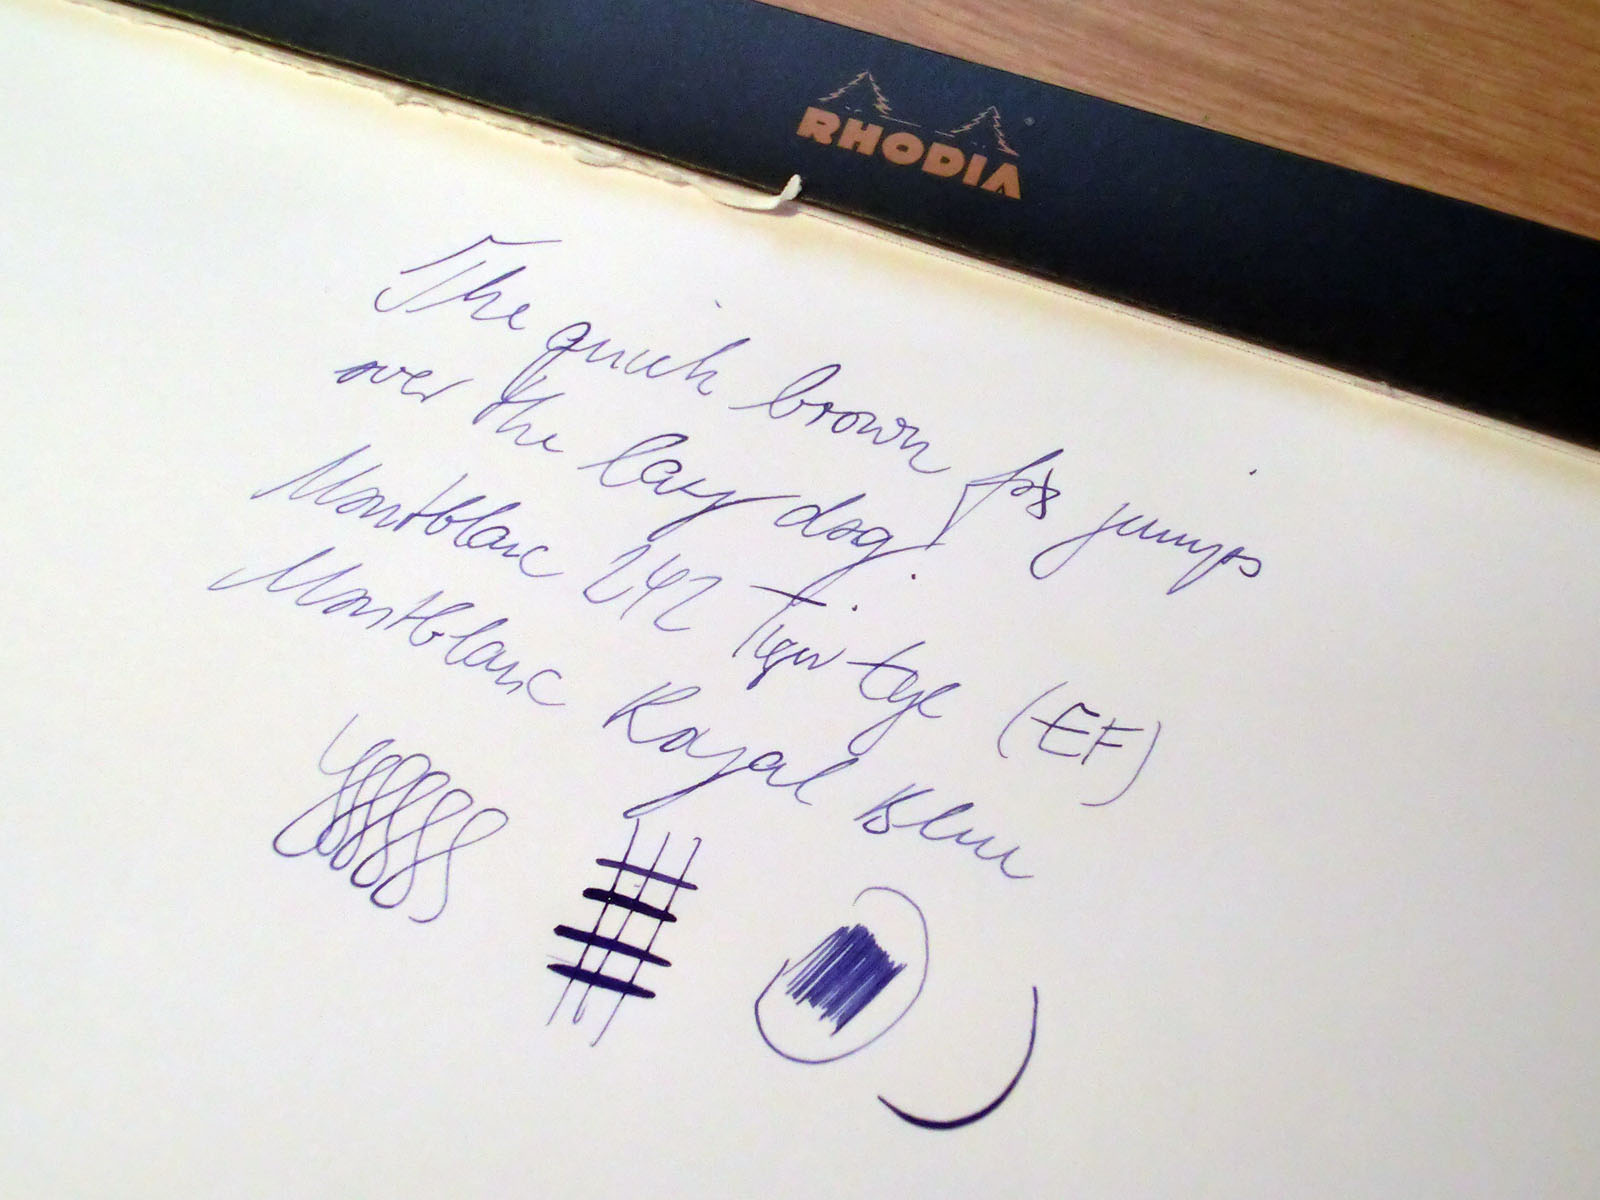 RHODIA
The quick brown fox jumps
over the lazy dog!
Montblanc 242 Tiger Eye (EF)
Montblanc Royal Blue